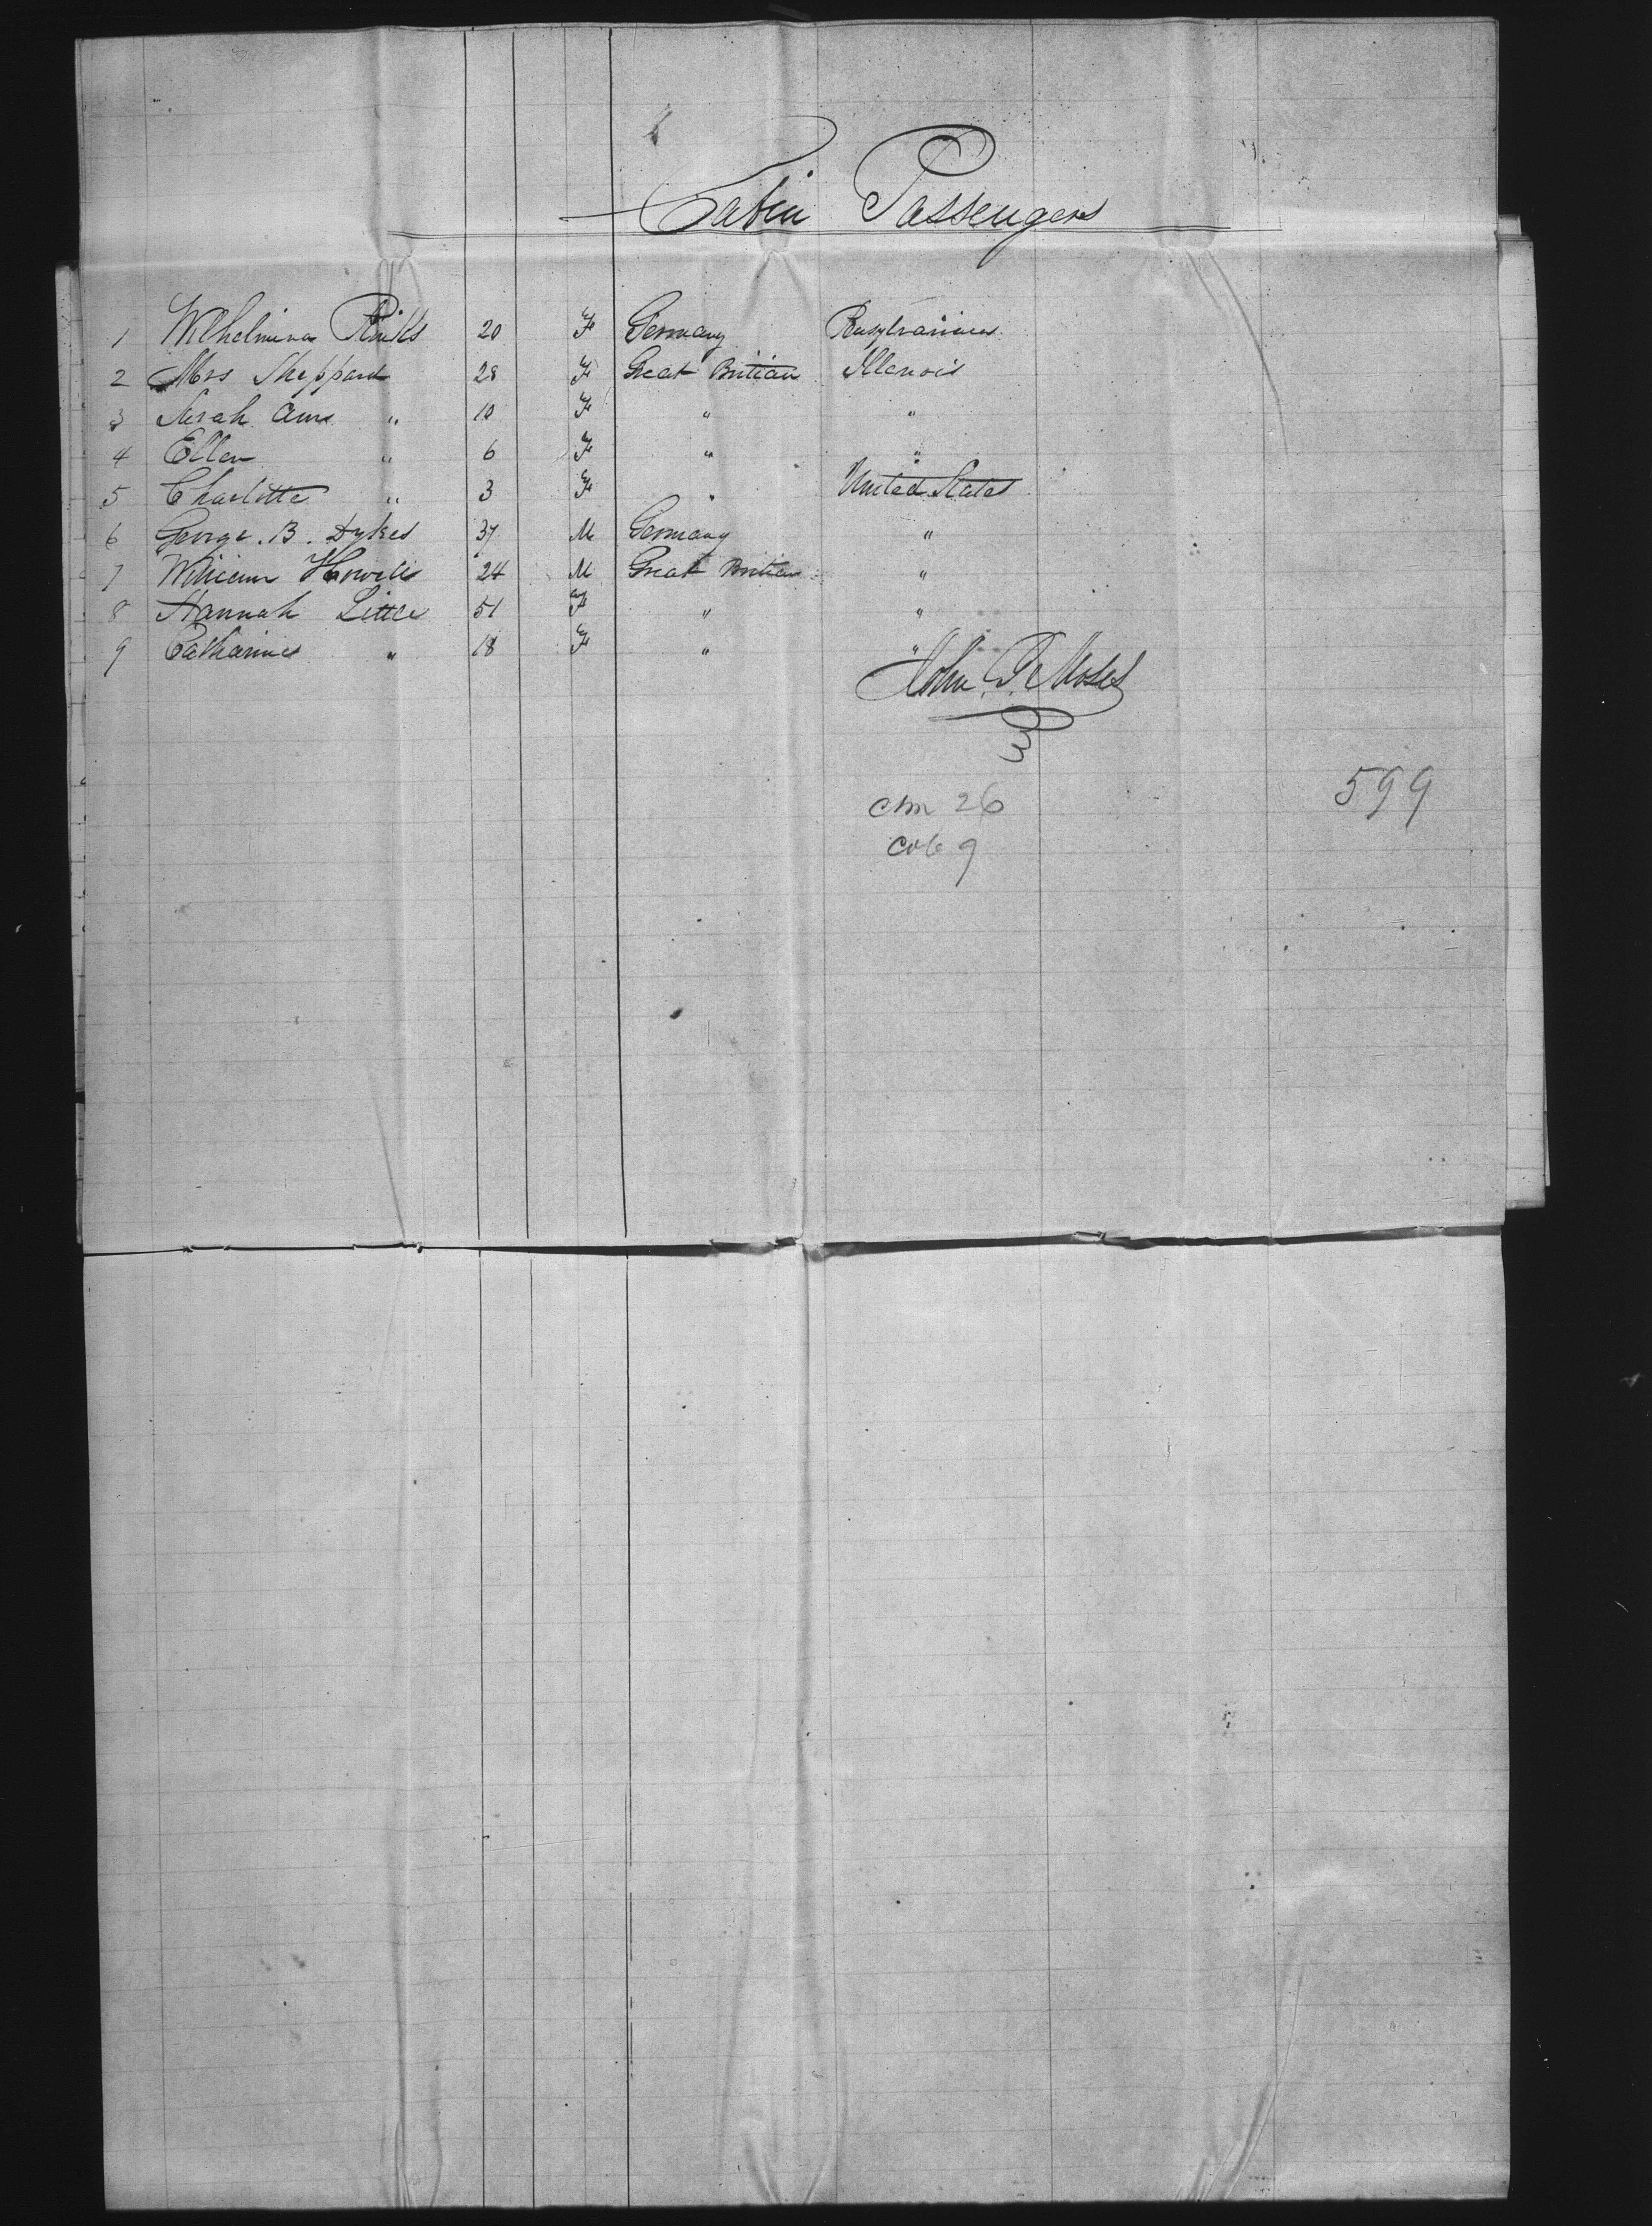 Cabin Passengers
1 Wilhelmina 20 F Germany Pensylvannia
2 Mrs Sheppard 28 F Great Britian Illenois
3 Sarah Ann " 10 F " "
4 Ellen " 6 F " "
5 Charlotte " 3 F " United States
6 George. B. Dykes 37 M Germany "
7 William Howells 24 M Great Britian "
8 Hannah Little 51 F " "
9 Catharine " 18 F " "
John. P. Moses
26
599
9